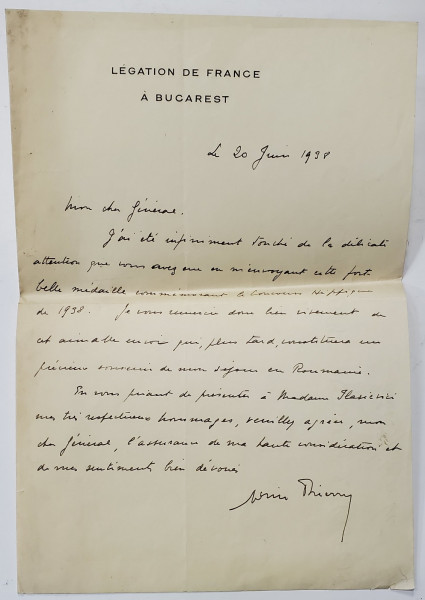 LÉGATION DE FRANCE
À BUCAREST
Le 20 Juin 1938
Mon cher Général.
J'ai été infiniment touché de la délicate
attention que vous avez eue en m'envoyant cette fort
belle médaille commémorant le Concours Hippique
de 1938. Je vous remercie donc bien vivement de
cet aimable envoi qui, plus tard, constituera un
précieux souvenir de mon séjour en Roumanie.
En vous priant de présenter à Madame
mes très respectueux hommages, veuillez agréer, mon
cher Général, l'assurance de ma haute considération et
de mes sentiments bien dévoués
Thierry